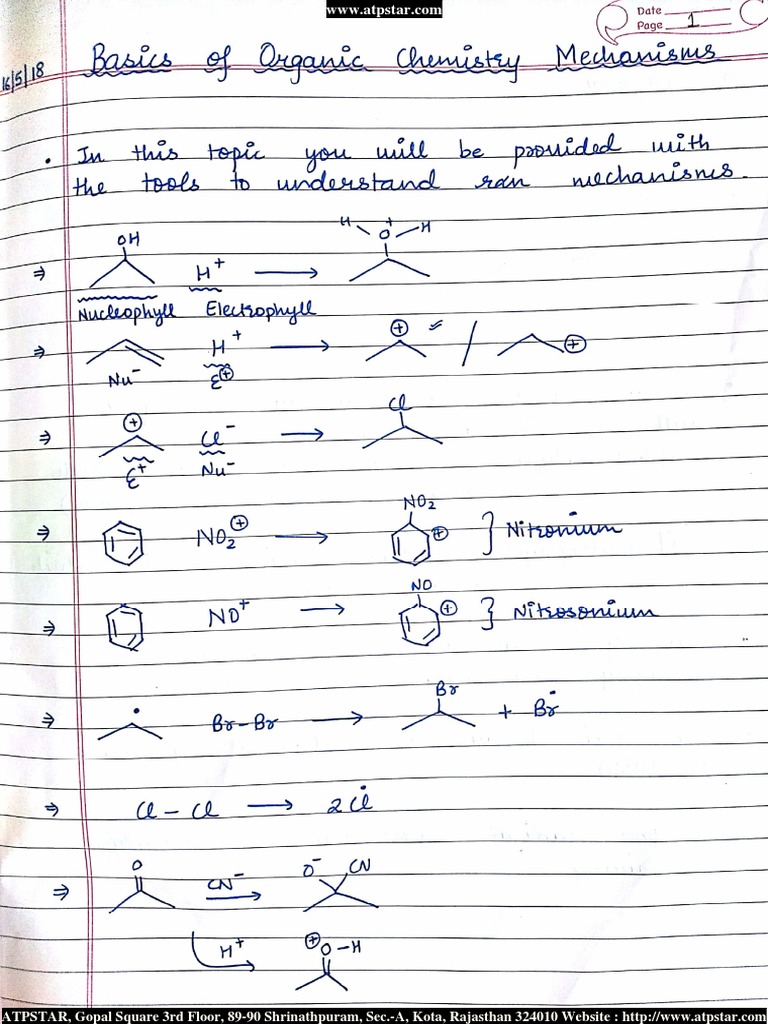 www.atpstar.com
Date
Page 1
16/5/18
Basics of Organic Chemistry Mechanisms
• In this topic you will be provided with
the tools to understand rxn mechanisms.
OH H⁺ ⟶ H O⁺ H
Nucleophyll Electrophyll
H⁺ ⟶ ⊕ / ⊕
Nu⁻ E⊕
⊕ Cl⁻ ⟶ Cl
E⁺ Nu⁻
NO₂⊕ ⟶ NO₂ ⊕ } Nitronium
NO⁺ ⟶ NO ⊕ } Nitrosonium
Br-Br ⟶ Br + Br•
Cl - Cl ⟶ 2Cl•
O CN⁻ ⟶ O⁻ CN
H⁺ ⊕O-H
ATPSTAR, Gopal Square 3rd Floor, 89-90 Shrinathpuram, Sec.-A, Kota, Rajasthan 324010 Website : http://www.atpstar.com